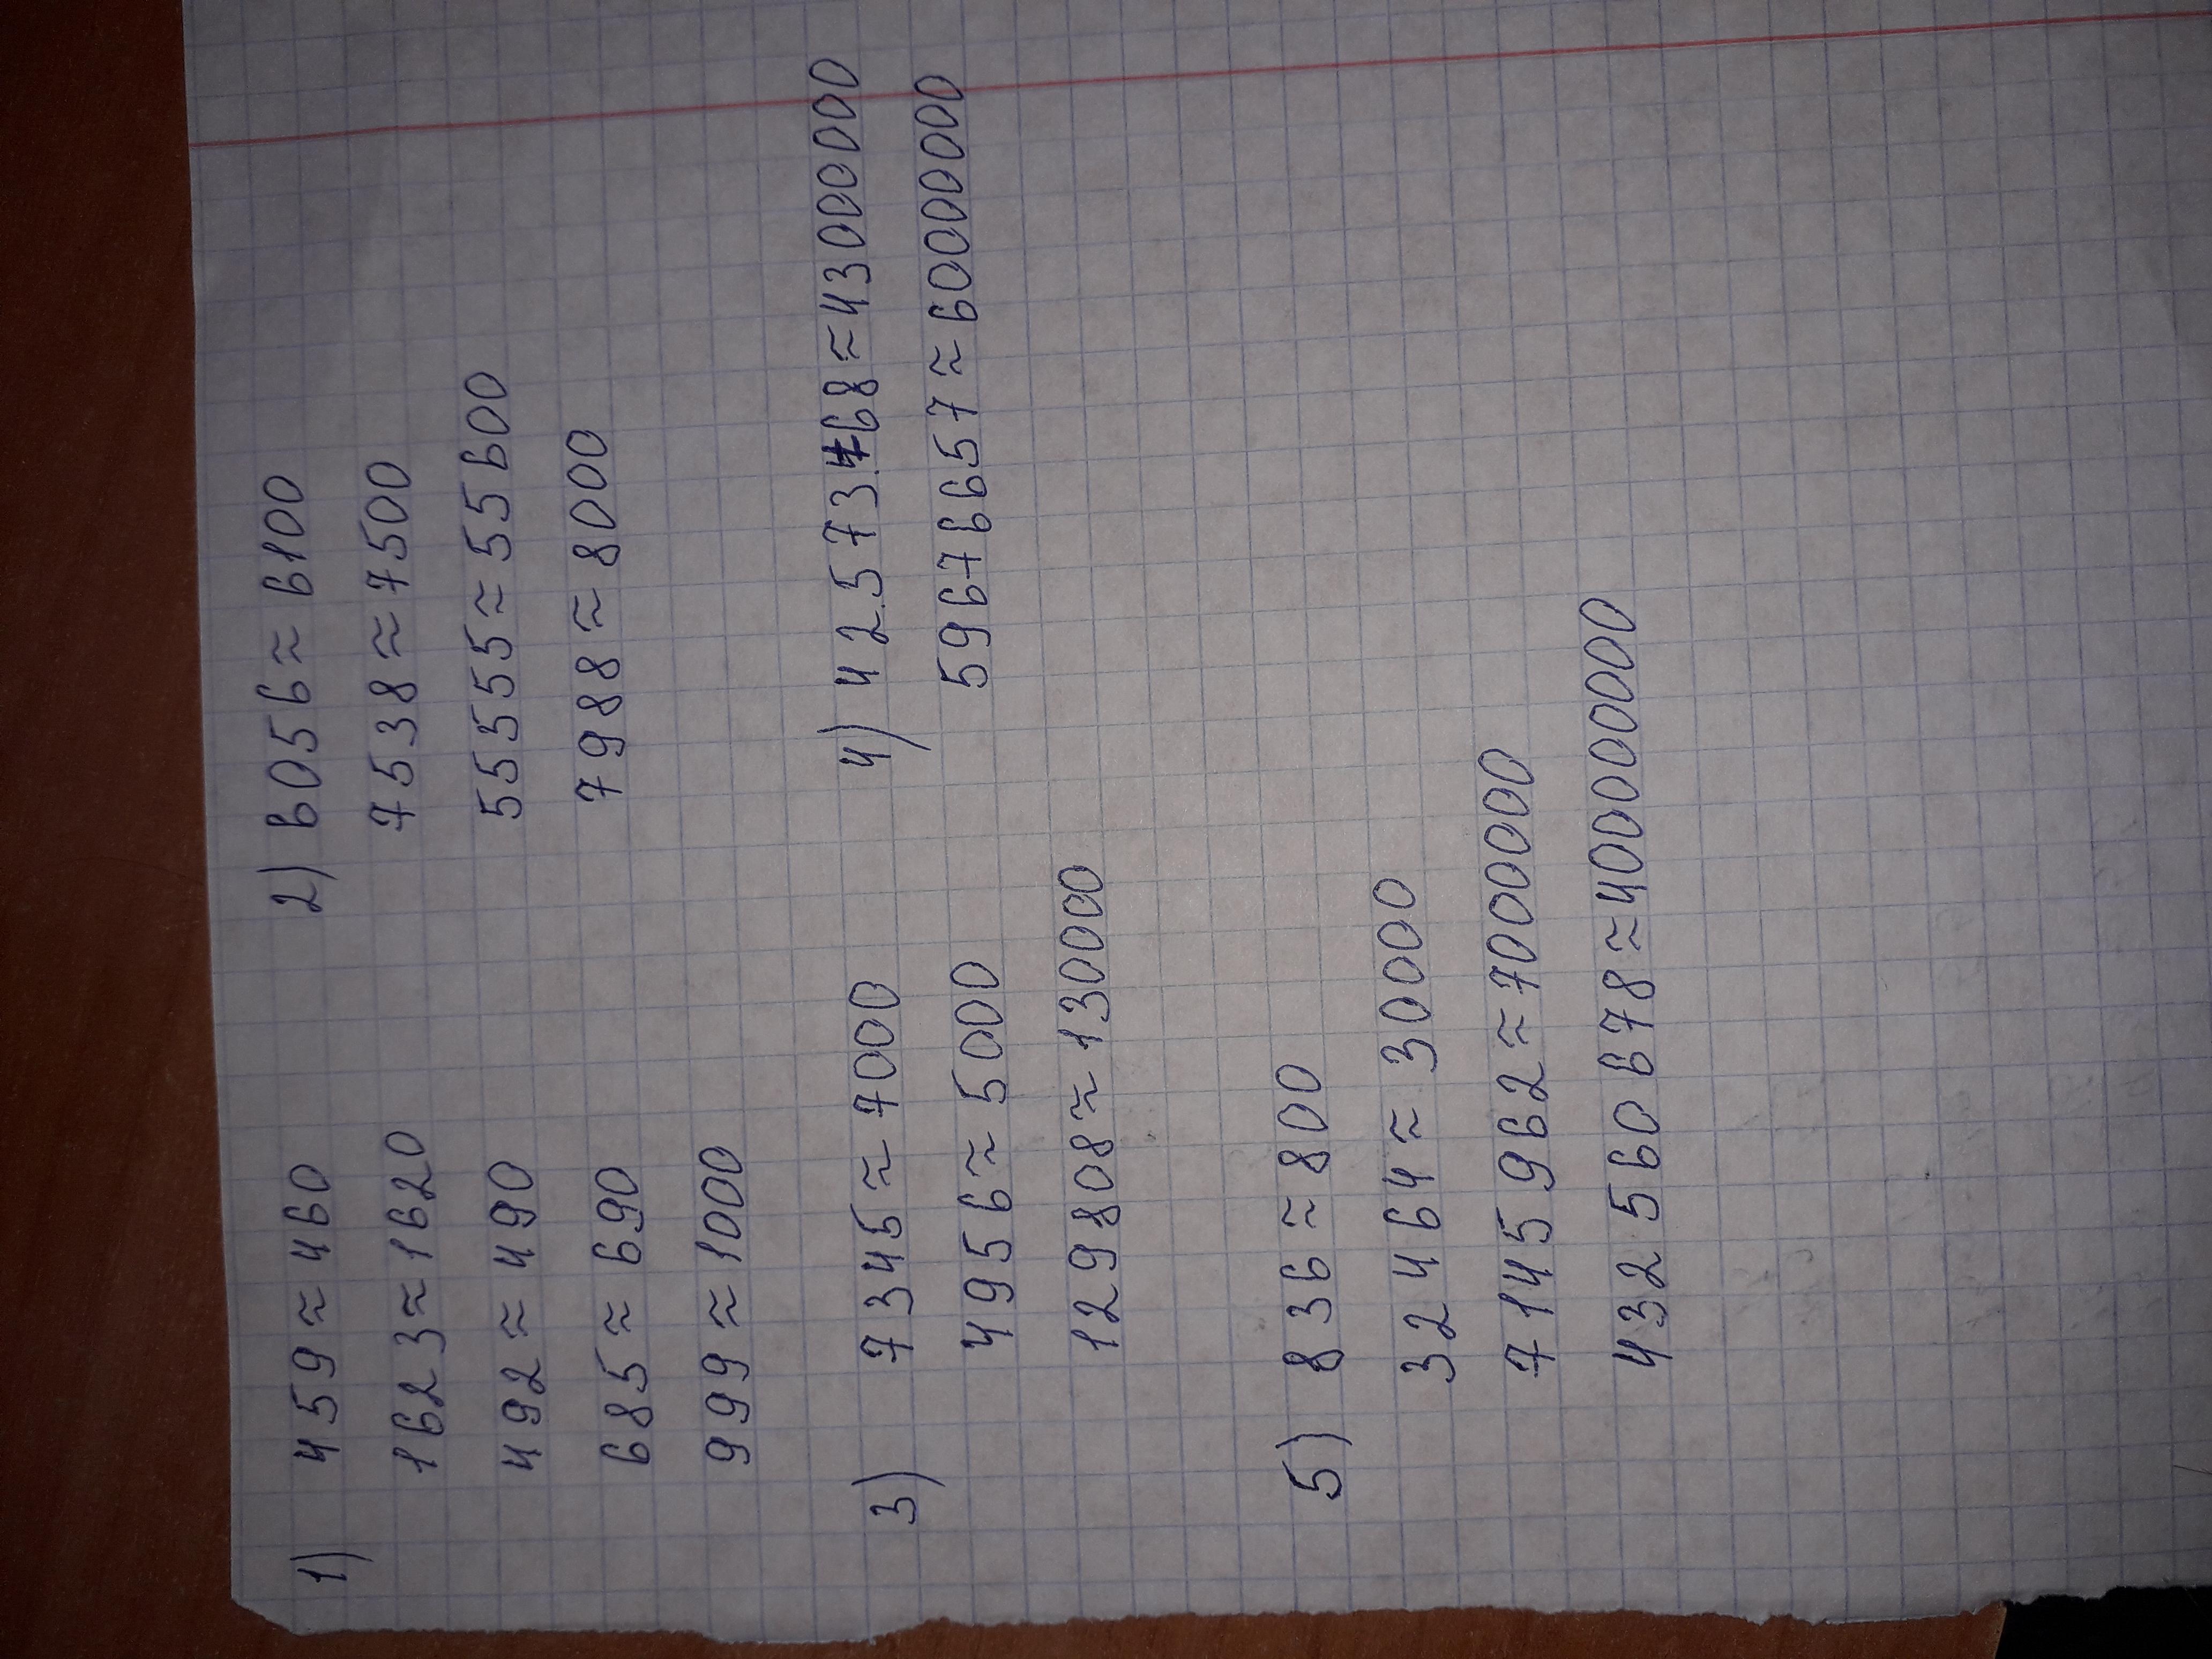 1) 459≈460
1623≈1620
492≈490
685≈690
999≈1000
2) 6056≈6100
7538≈7500
55555≈55600
7988≈8000
3) 7345≈7000
4956≈5000
12980‎8≈13000
4) 42573468≈43000000
59676657≈60000000
5) 836≈800
32464≈30000
7145962≈7000000
432560678≈400000000